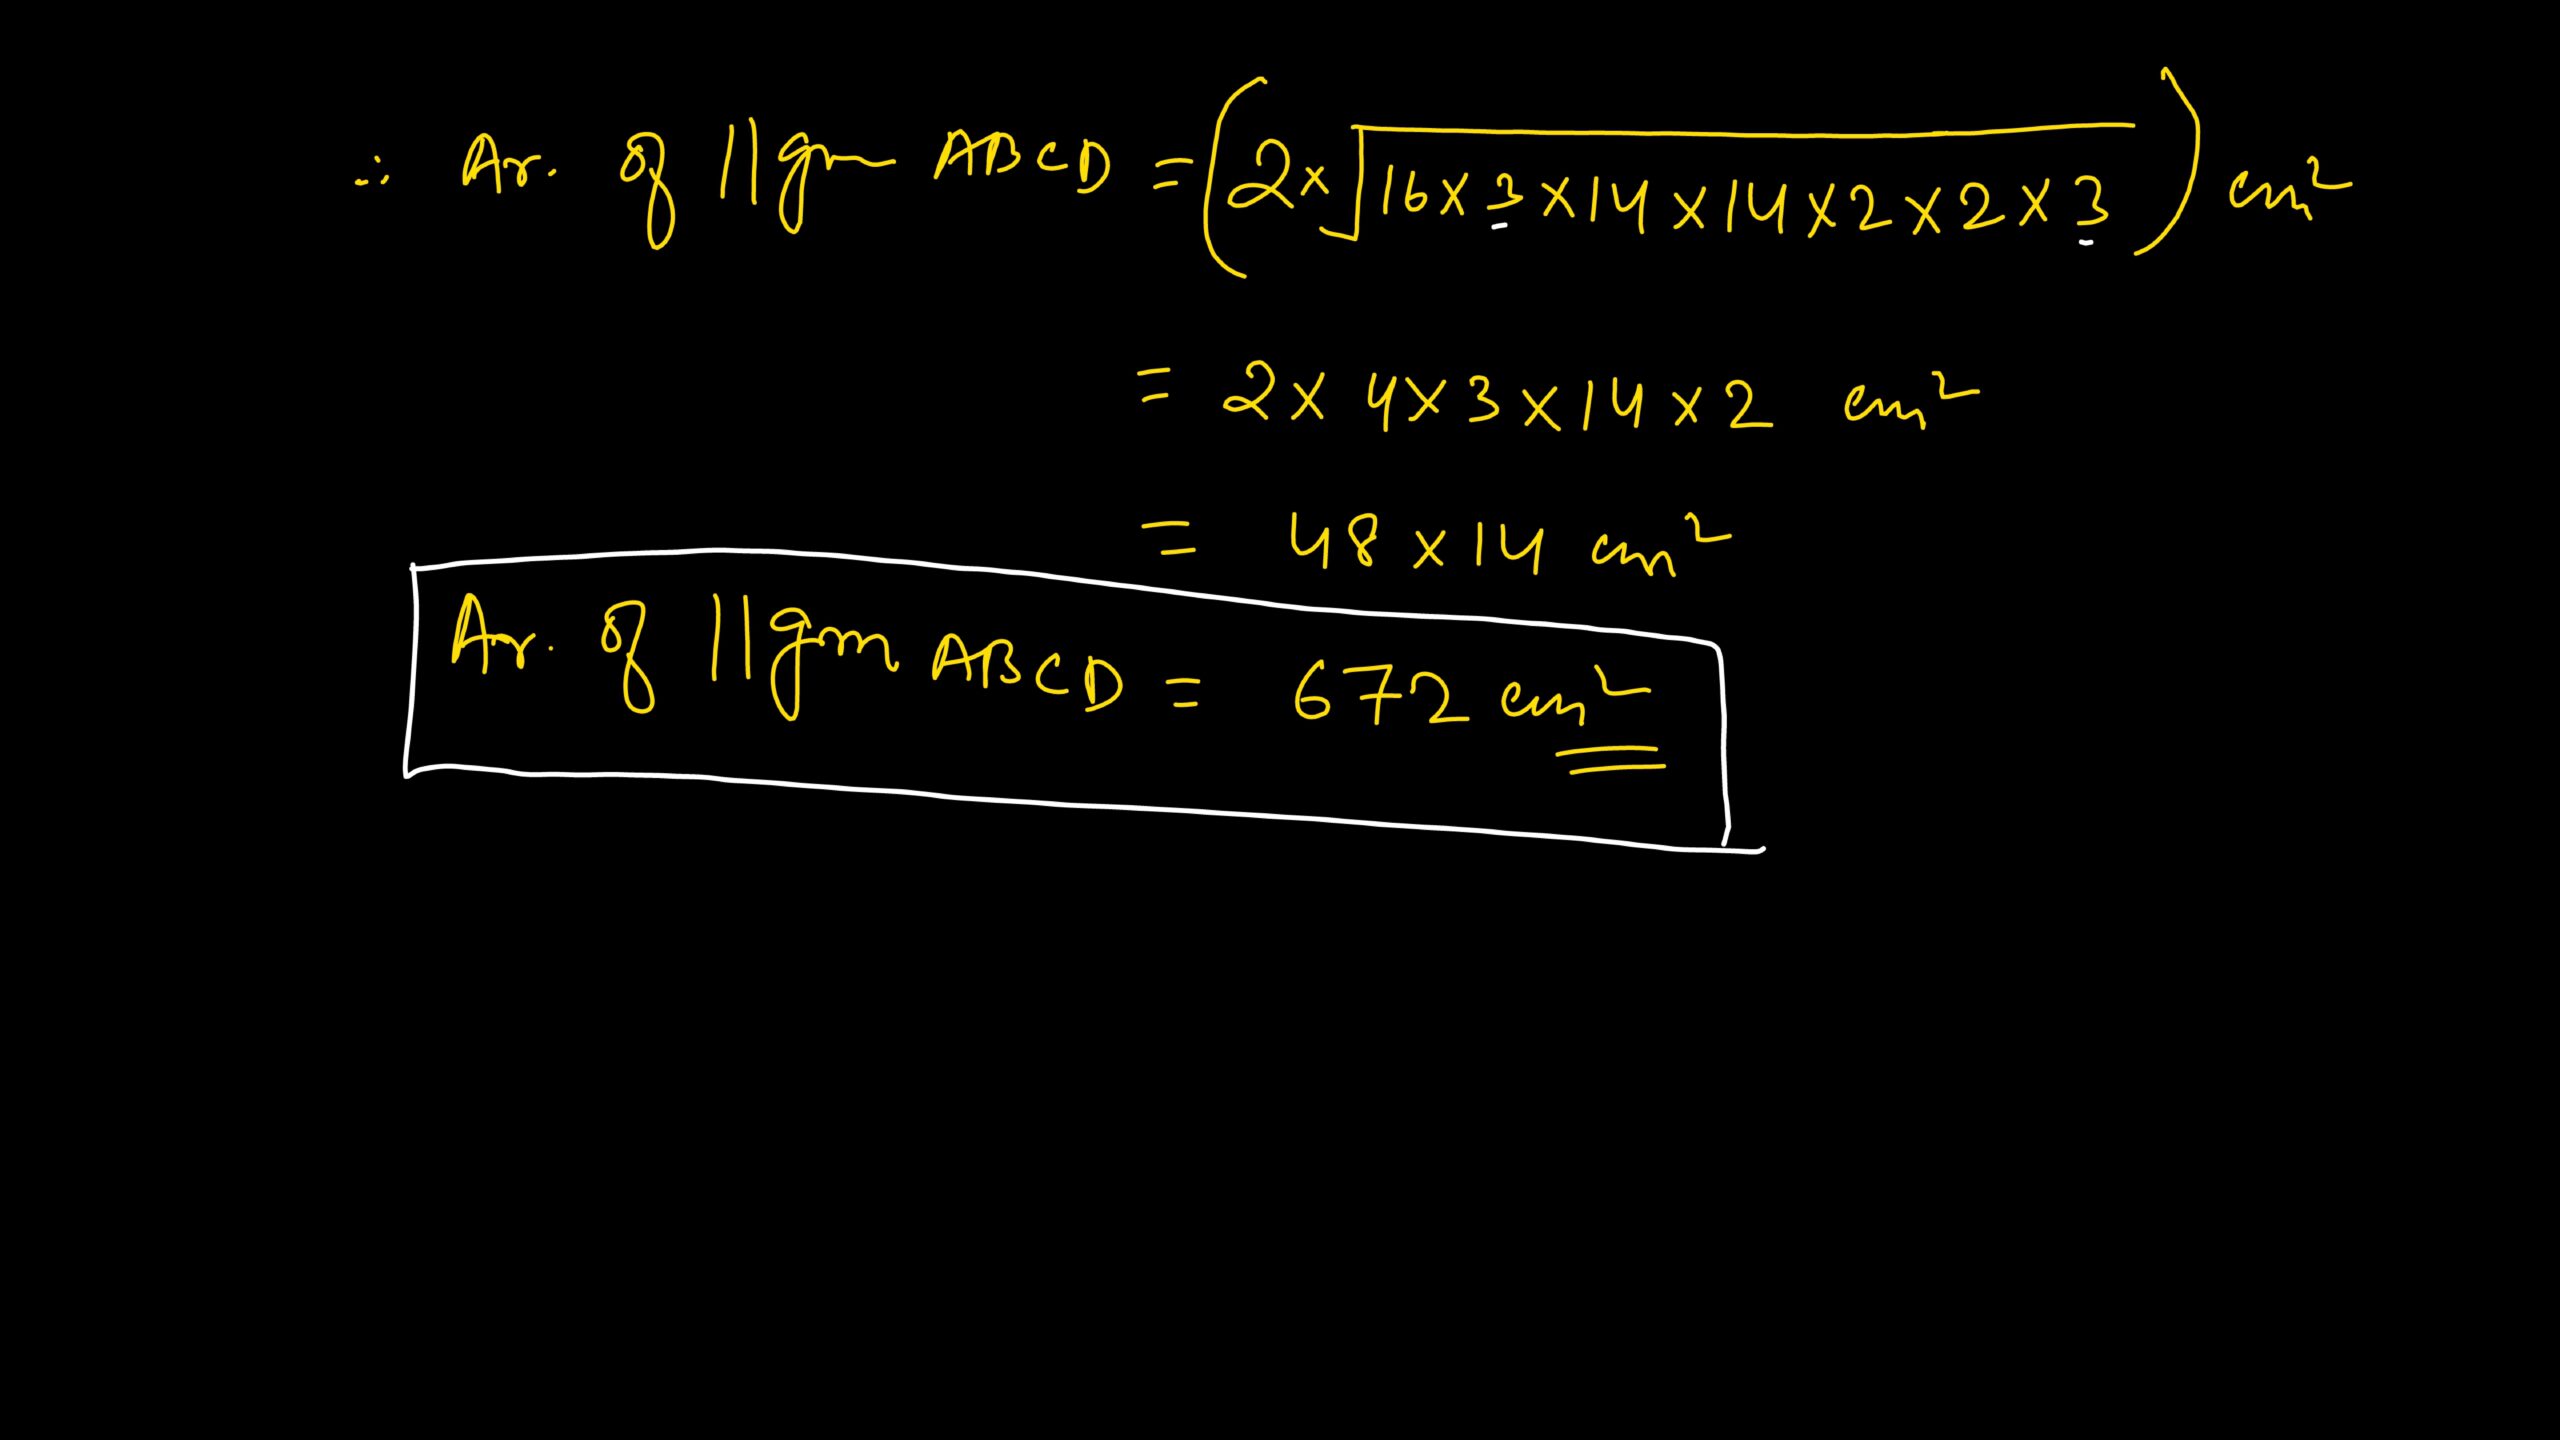 ∴ Ar. of ||gm ABCD = (2×√16×3×14×14×2×2×3) cm²
= 2×4×3×14×2 cm²
= 48×14 cm²
Ar. of ||gm ABCD = 672 cm²